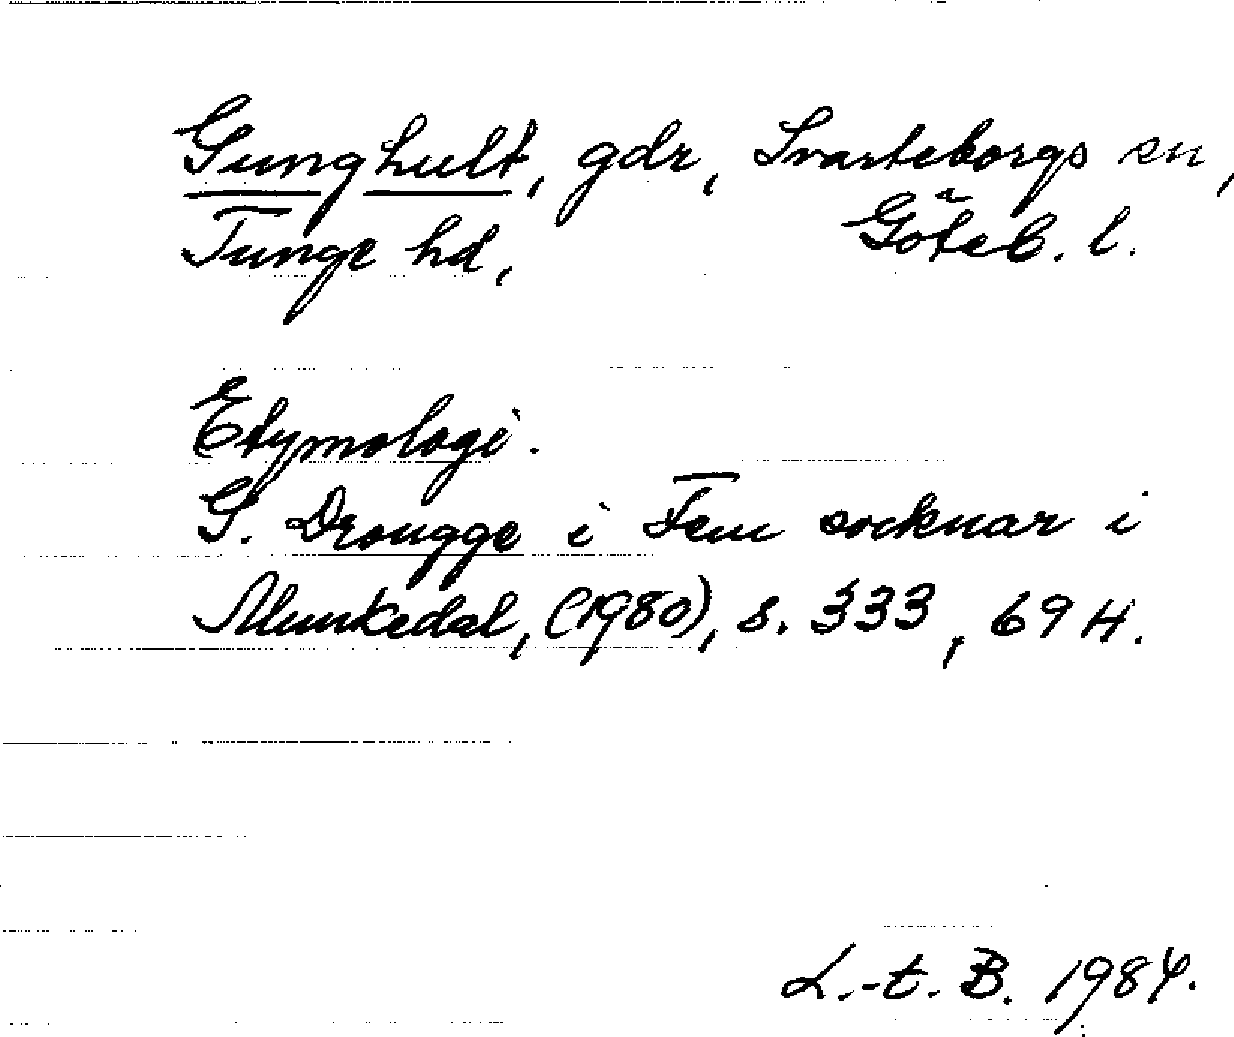 Gunghult, gdr, Svarteborgs sn,
Tunge hd, Göteb. l.
Etymologi.
G. Drougge i Fem socknar i
Munkedal, (1980), s. 333, 694.
L.-t. B. 1984.